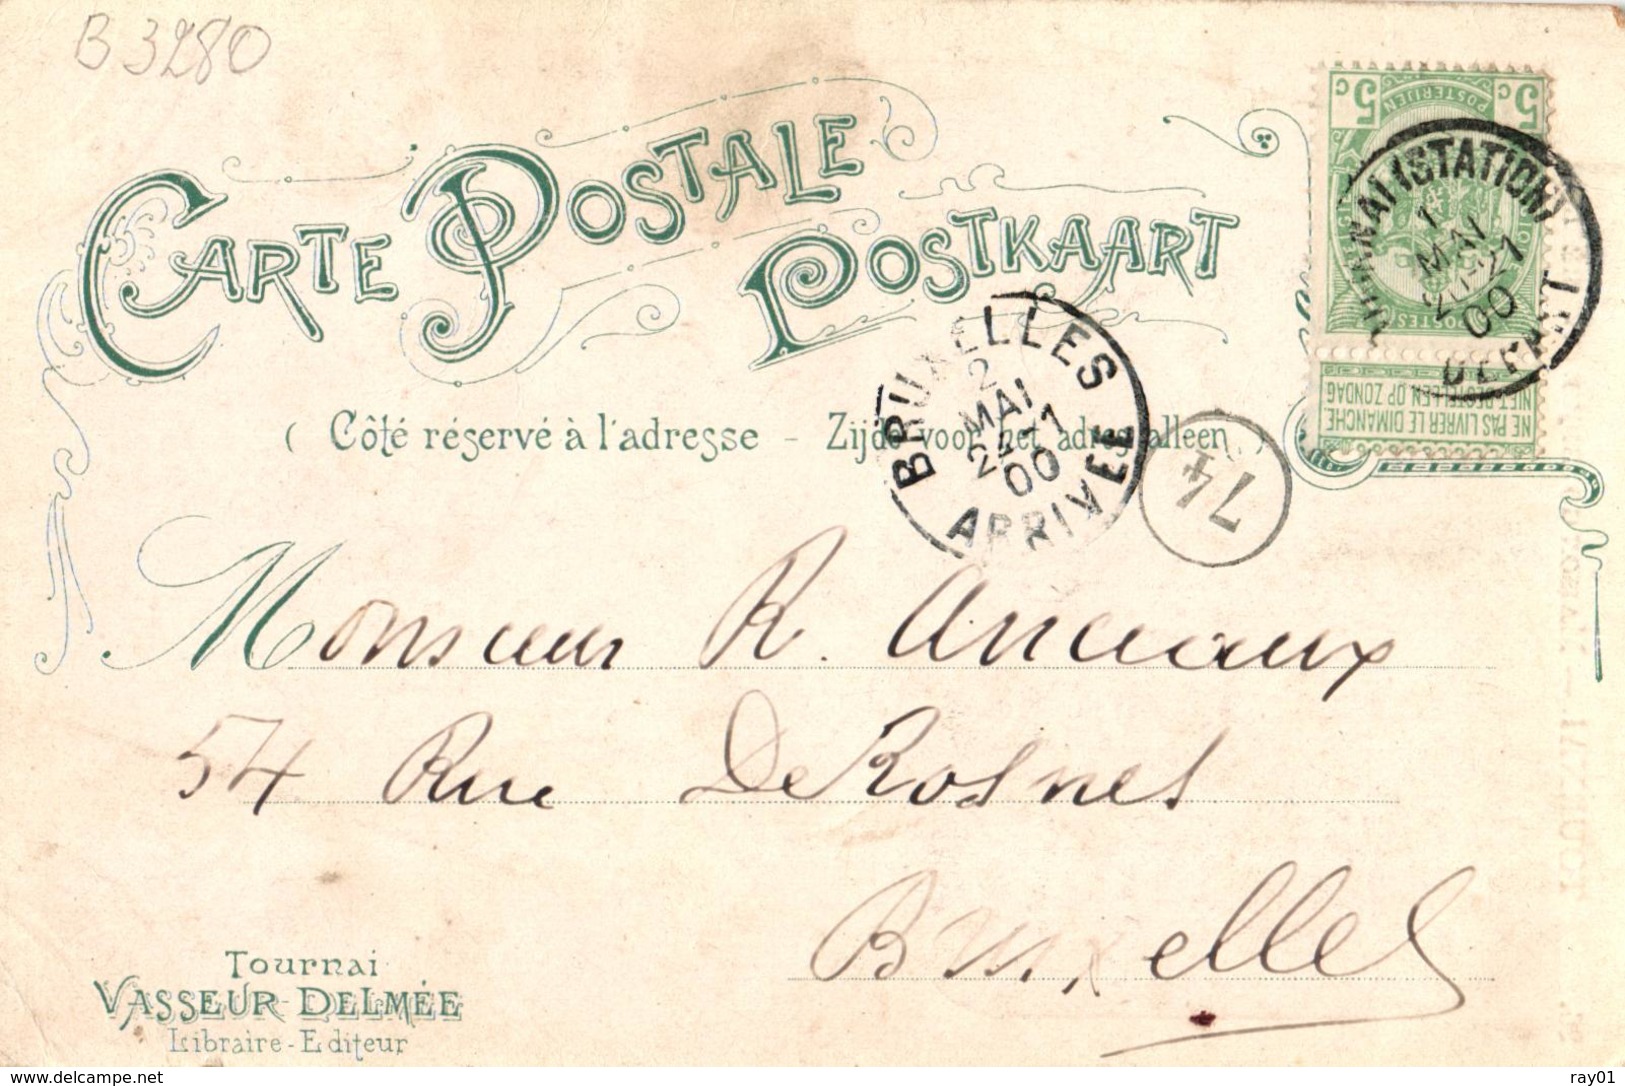 B 3280
CARTE POSTALE
POSTKAART
5c 5c
POSTERIJEN
POSTES
NE PAS LIVRER LE DIMANCHE.
NIET BESTELLEN OP ZONDAG
(STATION)
1
MAI
00
DEPART
( Côté réservé à l'adresse - Zijde voor het adres alleen )
BRUXELLES
2
MAI
00
ARRIVEE
74
Monsieur R. Anceaux
54 Rue De Rosnes
Bruxelles
Tournai
VASSEUR-DELMÉE
Libraire-Editeur
www.delcampe.net
ray01